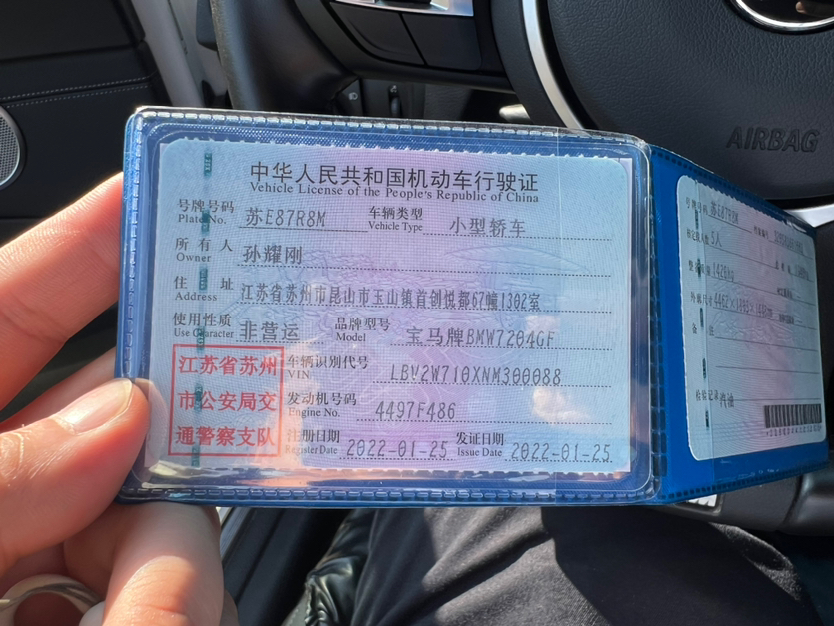 中华人民共和国机动车行驶证
Vehicle License of the People's Republic of China
号牌号码 苏E87R8M 车辆类型 小型轿车
Plate No. Vehicle Type
所有人 孙耀刚
Owner
住址 江苏省苏州市昆山市玉山镇首创悦都67幢1302室
Address
使用性质 非营运 品牌型号 宝马牌BMW7204GF
Use Character Model
江苏省苏州
市公安局交
通警察支队
车辆识别代号 LBV2W710XNM300088
VIN
发动机号码 4497F486
Engine No.
注册日期 2022-01-25 发证日期 2022-01-25
Register Date Issue Date
号牌号码 苏E87R8M
AIRBAG